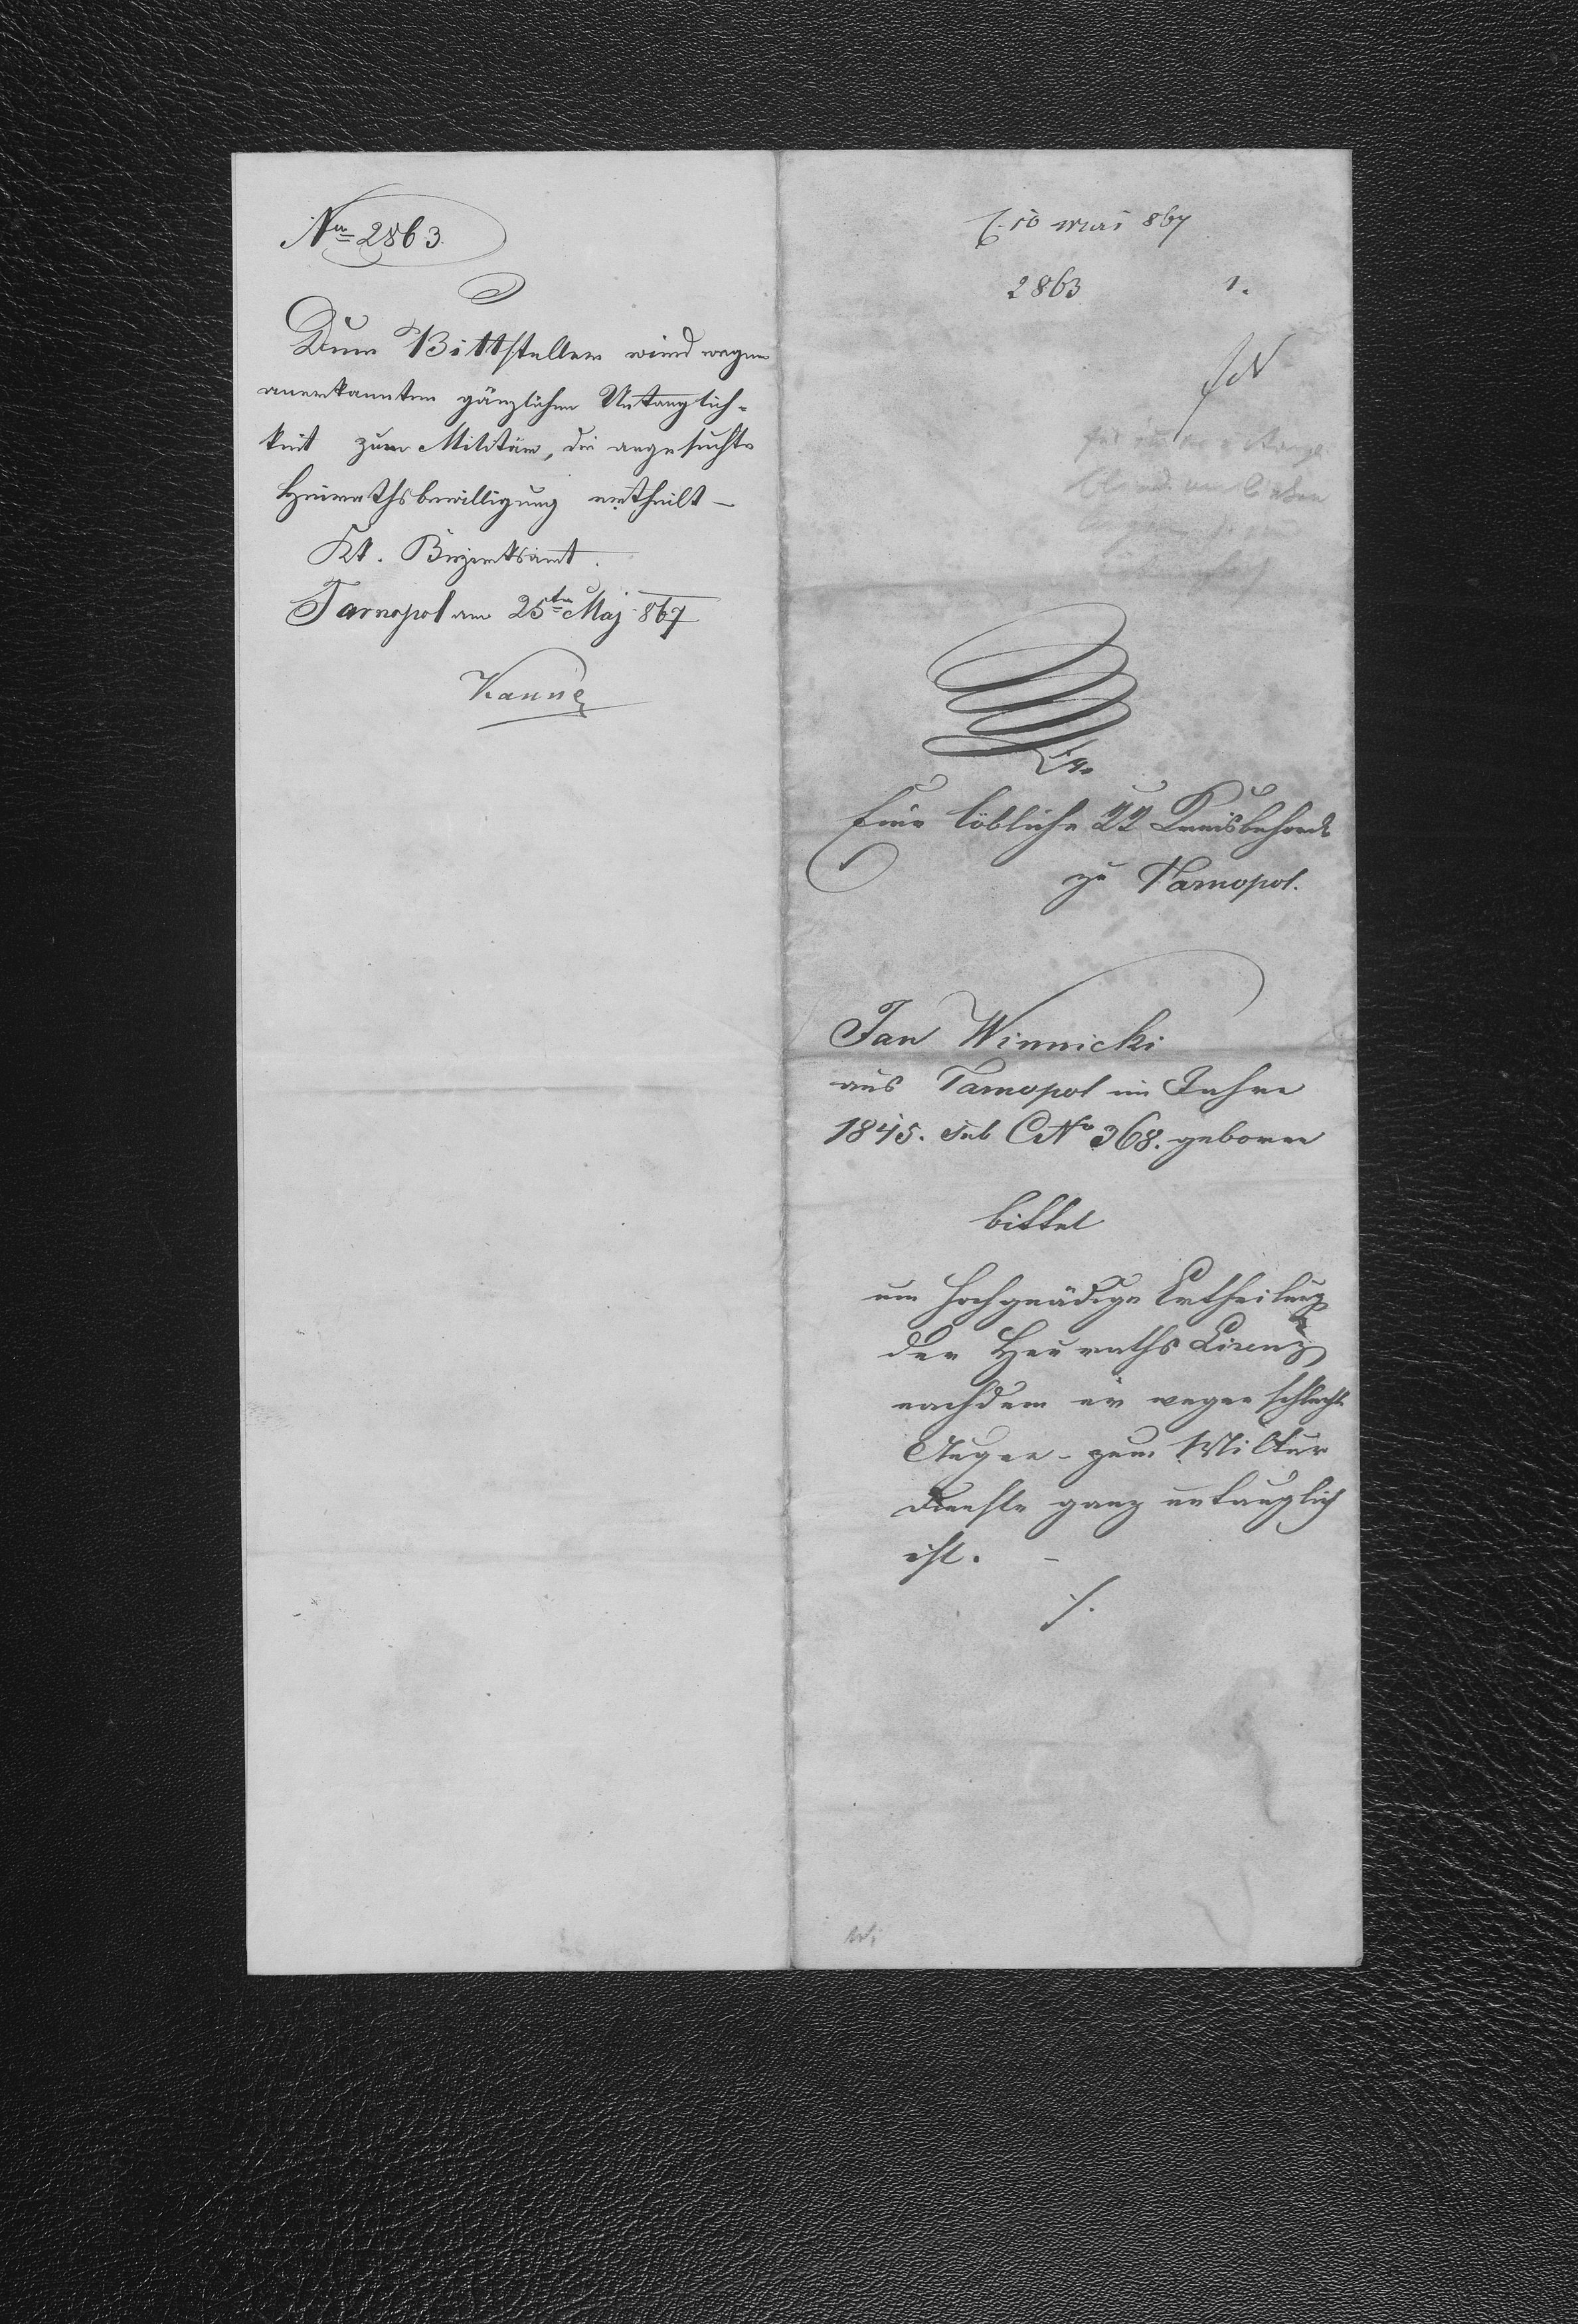 Nro 2863.
Dem Bittsteller wird wegen
anerkannten gänzlichen Untauglich-
keit zum Militär, die angesuchte
Heirathsbewilligung ertheilt –
KK. Bezirksamt.
Tarnopol am 25ten Maj 867
10 Mai 867
2863 1.
An
Eine löbliche KK Kreisbehörde
zu Tarnopol.
Jan Winnicki
aus Tarnopol im Jahre
1845. sub CNo 368. geboren
bittet
um hochgnädige Ertheilung
der Heuraths Licenz
nachdem er wegen schlechte
Augen – zum Militur
dienste ganz untauglich
ist. –